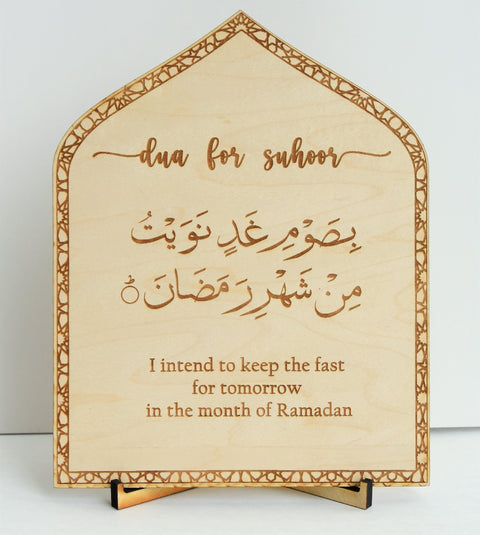 dua for suhoor
بِصَوْمِ غَدٍ نَوَيْتُ
مِنْ شَهْرِ رَمَضَانَ
I intend to keep the fast
for tomorrow
in the month of Ramadan